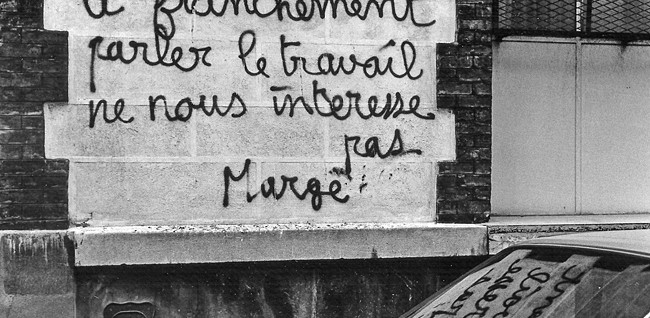 a franchement
parler le travail
ne nous interesse
pas
Margë